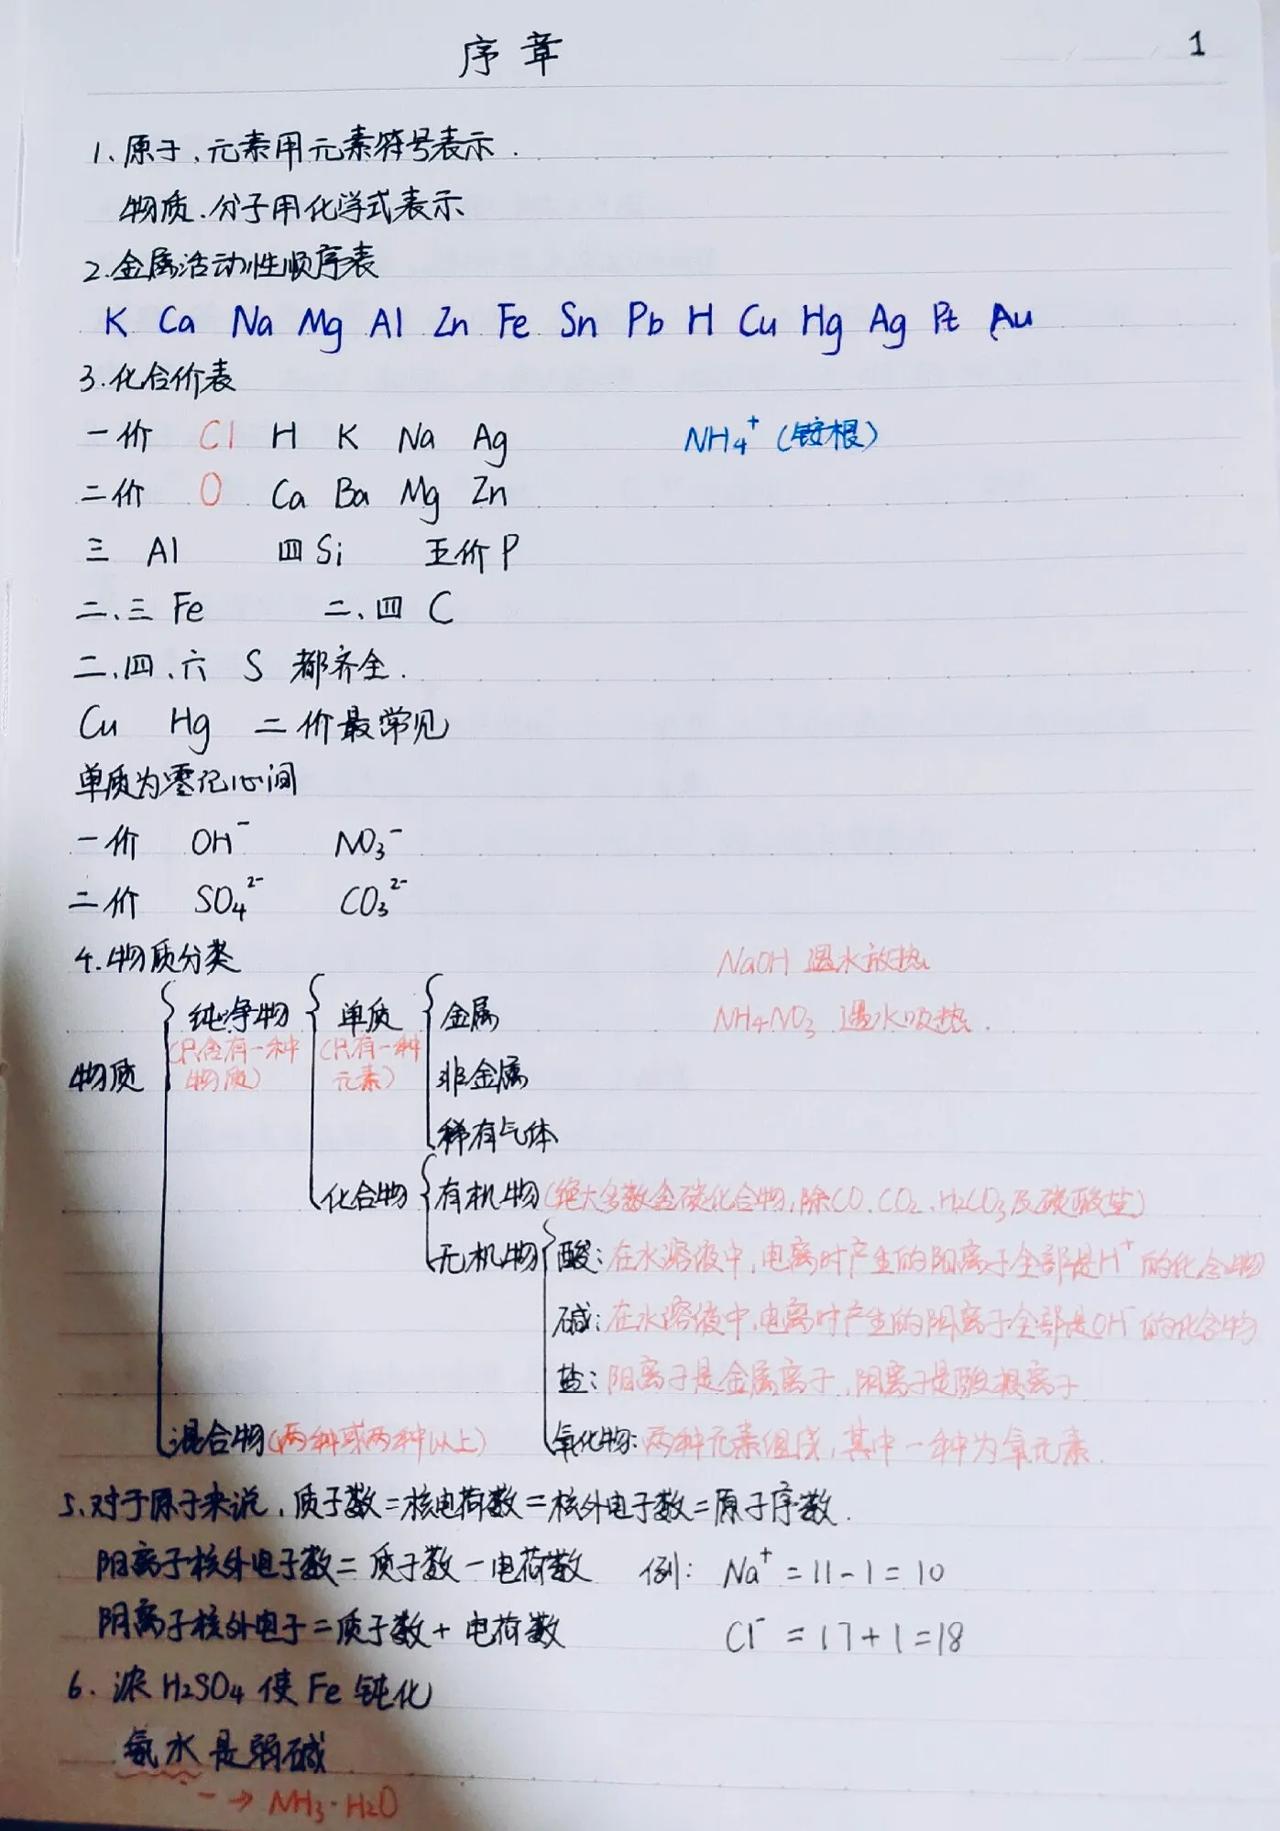 1
序章
1、原子、元素用元素符号表示.
物质、分子用化学式表示
2.金属活动性顺序表
K Ca Na Mg Al Zn Fe Sn Pb H Cu Hg Ag Pt Au
3.化合价表
一价 Cl H K Na Ag NH₄⁺(铵根)
二价 O Ca Ba Mg Zn
三 Al 四 Si 五价 P
二、三 Fe 二、四 C
二、四、六 S 都齐全.
Cu Hg 二价最常见
单质为零记心间
一价 OH⁻ NO₃⁻
二价 SO₄²⁻ CO₃²⁻
4.物质分类
NaOH 遇水放热
NH₄NO₃ 遇水吸热.
物质
纯净物
(只含有一种
物质)
单质
(只有一种
元素)
金属
非金属
稀有气体
化合物
有机物(绝大多数含碳化合物,除CO、CO₂、H₂CO₃及碳酸盐)
无机物
酸:在水溶液中,电离时产生的阳离子全部是H⁺的化合物
碱:在水溶液中,电离时产生的阴离子全部是OH⁻的化合物
盐:阳离子是金属离子,阴离子是酸根离子
氧化物:两种元素组成,其中一种为氧元素.
混合物(两种或两种以上)
5.对于原子来说,质子数=核电荷数=核外电子数=原子序数.
阳离子核外电子数=质子数-电荷数 例: Na⁺=11-1=10
阴离子核外电子=质子数+电荷数 Cl⁻=17+1=18
6. 浓H₂SO₄使Fe钝化
氨水是弱碱
→ NH₃·H₂O